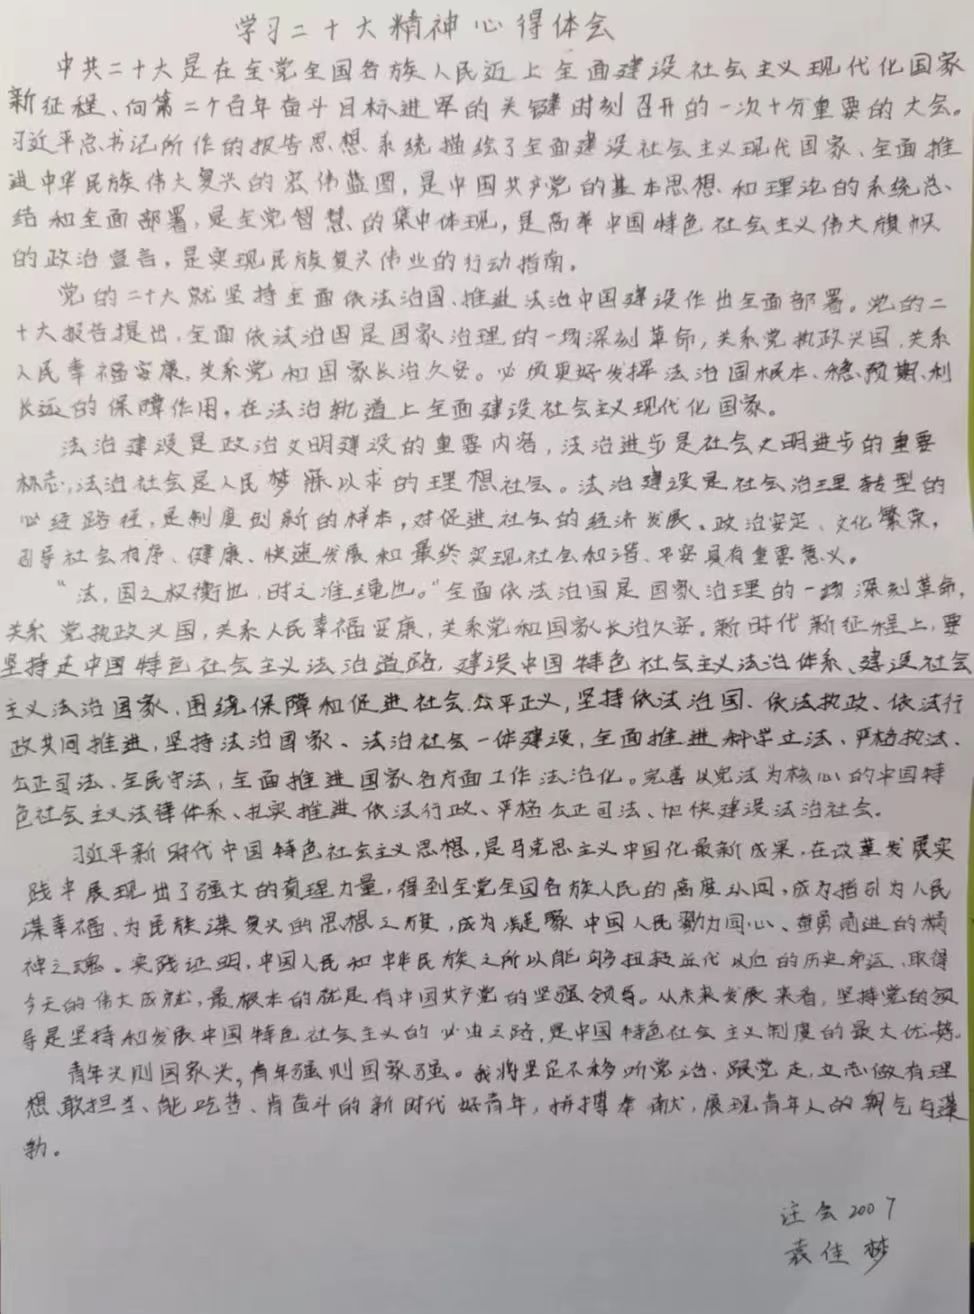 学习二十大精神心得体会
中共二十大是在全党全国各族人民迈上全面建设社会主义现代化国家
新征程、向第二个百年奋斗目标进军的关键时刻召开的一次十分重要的大会。
习近平总书记所作的报告思想、系统描绘了全面建设社会主义现代国家、全面推
进中华民族伟大复兴的宏伟蓝图，是中国共产党的基本思想和理论的系统总
结和全面部署，是全党智慧的集中体现，是高举中国特色社会主义伟大旗帜
的政治宣言，是实现民族复兴伟业的行动指南。
党的二十大就坚持全面依法治国、推进法治中国建设作出全面部署。党的二
十大报告提出，全面依法治国是国家治理的一场深刻革命，关系党执政兴国，关系
人民幸福安康，关系党和国家长治久安。必须更好发挥法治固根本、稳预期、利
长远的保障作用，在法治轨道上全面建设社会主义现代化国家。
法治建设是政治文明建设的重要内容，法治进步是社会文明进步的重要
标志，法治社会是人民梦寐以求的理想社会。法治建设是社会治理转型的
必经路径，是制度创新的样本，对促进社会的经济发展、政治安定、文化繁荣，
引导社会有序、健康、快速发展和最终实现社会和谐、平安具有重要意义。
“法，国之权衡也，时之准绳也。”全面依法治国是国家治理的一场深刻革命，
关系党执政兴国，关系人民幸福安康，关系党和国家长治久安。新时代新征程上，要
坚持走中国特色社会主义法治道路，建设中国特色社会主义法治体系、建设社会
主义法治国家，围绕保障和促进社会公平正义，坚持依法治国、依法执政、依法行
政共同推进，坚持法治国家、法治社会一体建设，全面推进科学立法、严格执法、
公正司法、全民守法，全面推进国家各方面工作法治化。完善以宪法为核心的中国特
色社会主义法律体系、扎实推进依法行政、严格公正司法、加快建设法治社会。
习近平新时代中国特色社会主义思想，是马克思主义中国化最新成果，在改革发展实
践中展现出了强大的真理力量，得到全党全国各族人民的高度认同，成为指引为人民
谋幸福、为民族谋复兴的思想之旗，成为凝聚中国人民勠力同心、奋勇前进的精
神之魂。实践证明，中国人民和中华民族之所以能够扭转近代以后的历史命运、取得
今天的伟大成就，最根本的就是有中国共产党的坚强领导。从未来发展来看，坚持党的领
导是坚持和发展中国特色社会主义的必由之路，是中国特色社会主义制度的最大优势。
青年兴则国家兴，青年强则国家强。我将坚定不移听党话、跟党走，立志做有理
想、敢担当、能吃苦、肯奋斗的新时代好青年，拼搏奉献，展现青年人的朝气与蓬
勃。
注会2007
袁佳梦